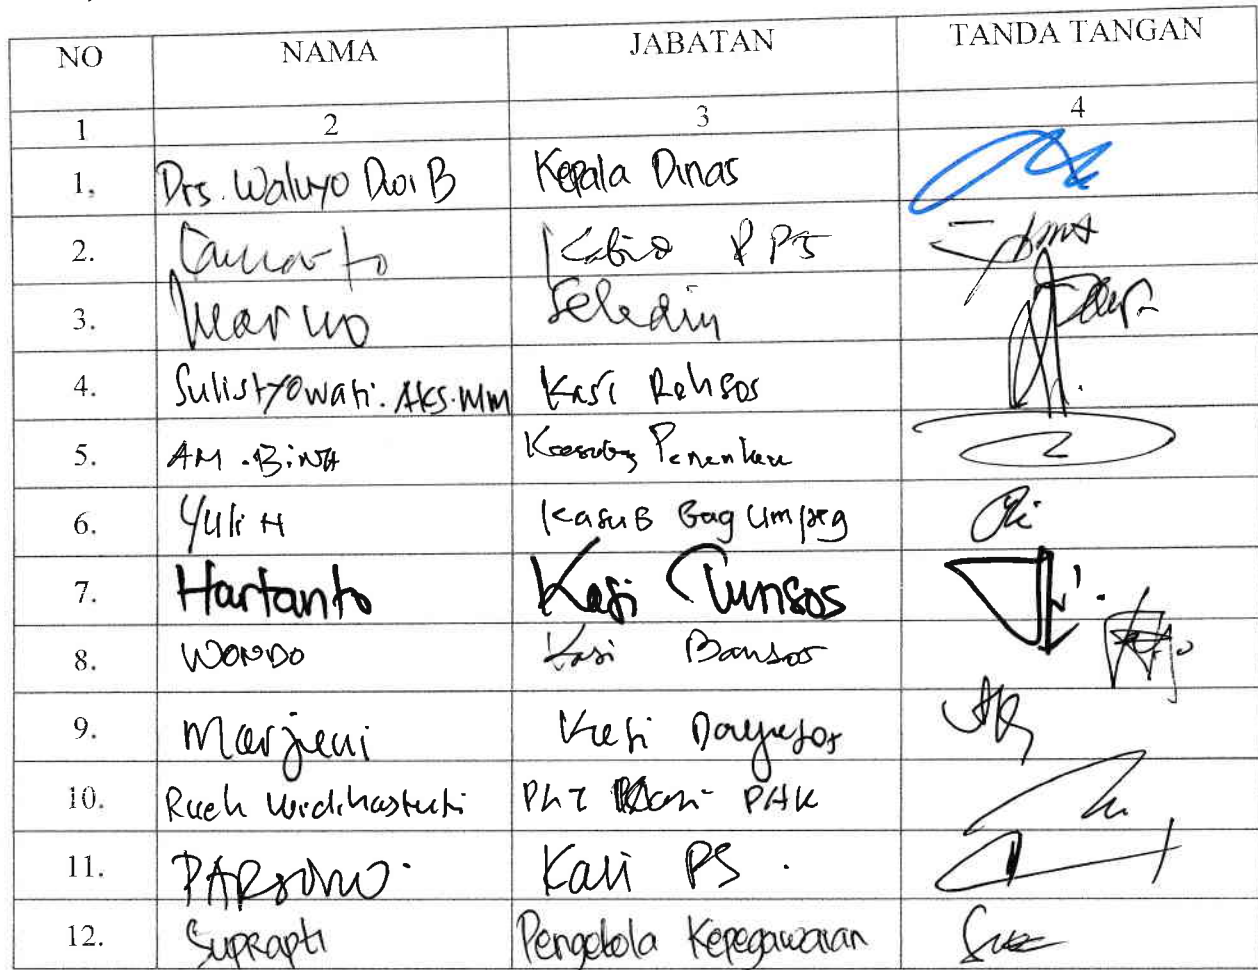 NO NAMA JABATAN TANDA TANGAN
1 2 3 4
1. Drs. Waluyo Dwi B Kepala Dinas
2. PPJS
3. Marno
4. Sulistyowati. AKS.MM Kasi Rehsos
5. AM. Bina Kasubag
6. Yuli H Kasub Bag Umpeg
7. Hartanto Kasi Tunsos
8. WONDO Kasi Bansos
9. Marjieni Kasi Dayasos
10. Ruch Widihastuti PLT Kasi PHK
11. PARSONO. Kasi PS .
12. Suprapti Pengelola Kepegawaian